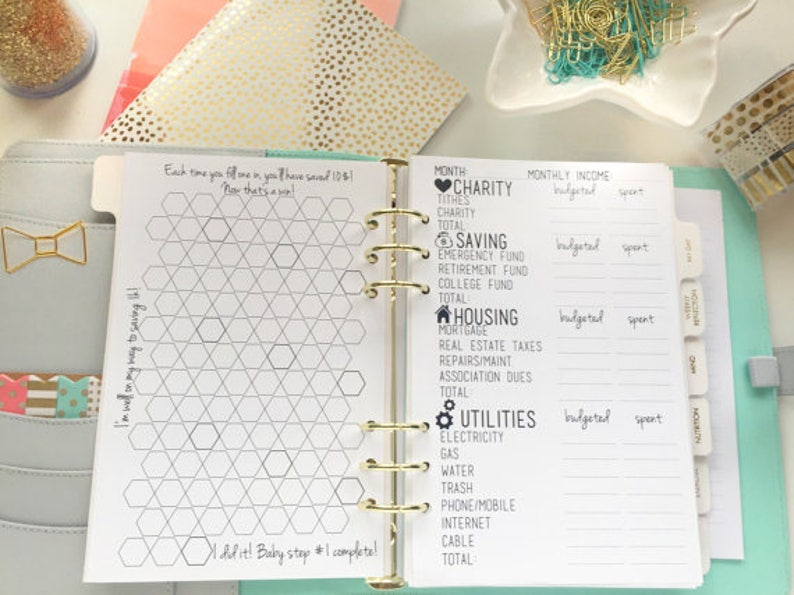 Each time you fill one in, you'll have saved 10$!
Now that's a win!
I'm well on my way to saving 1k!
I did it! Baby step #1 complete!
MONTH: MONTHLY INCOME
CHARITY budgeted spent
TITHES
CHARITY
TOTAL:
$ SAVING budgeted spent
EMERGENCY FUND
RETIREMENT FUND
COLLEGE FUND
TOTAL:
HOUSING budgeted spent
MORTGAGE
REAL ESTATE TAXES
REPAIRS/MAINT.
ASSOCIATION DUES
TOTAL:
UTILITIES budgeted spent
ELECTRICITY
GAS
WATER
TRASH
PHONE/MOBILE
INTERNET
CABLE
TOTAL:
WEEKLY
REFLECTION
MIND
NUTRITION